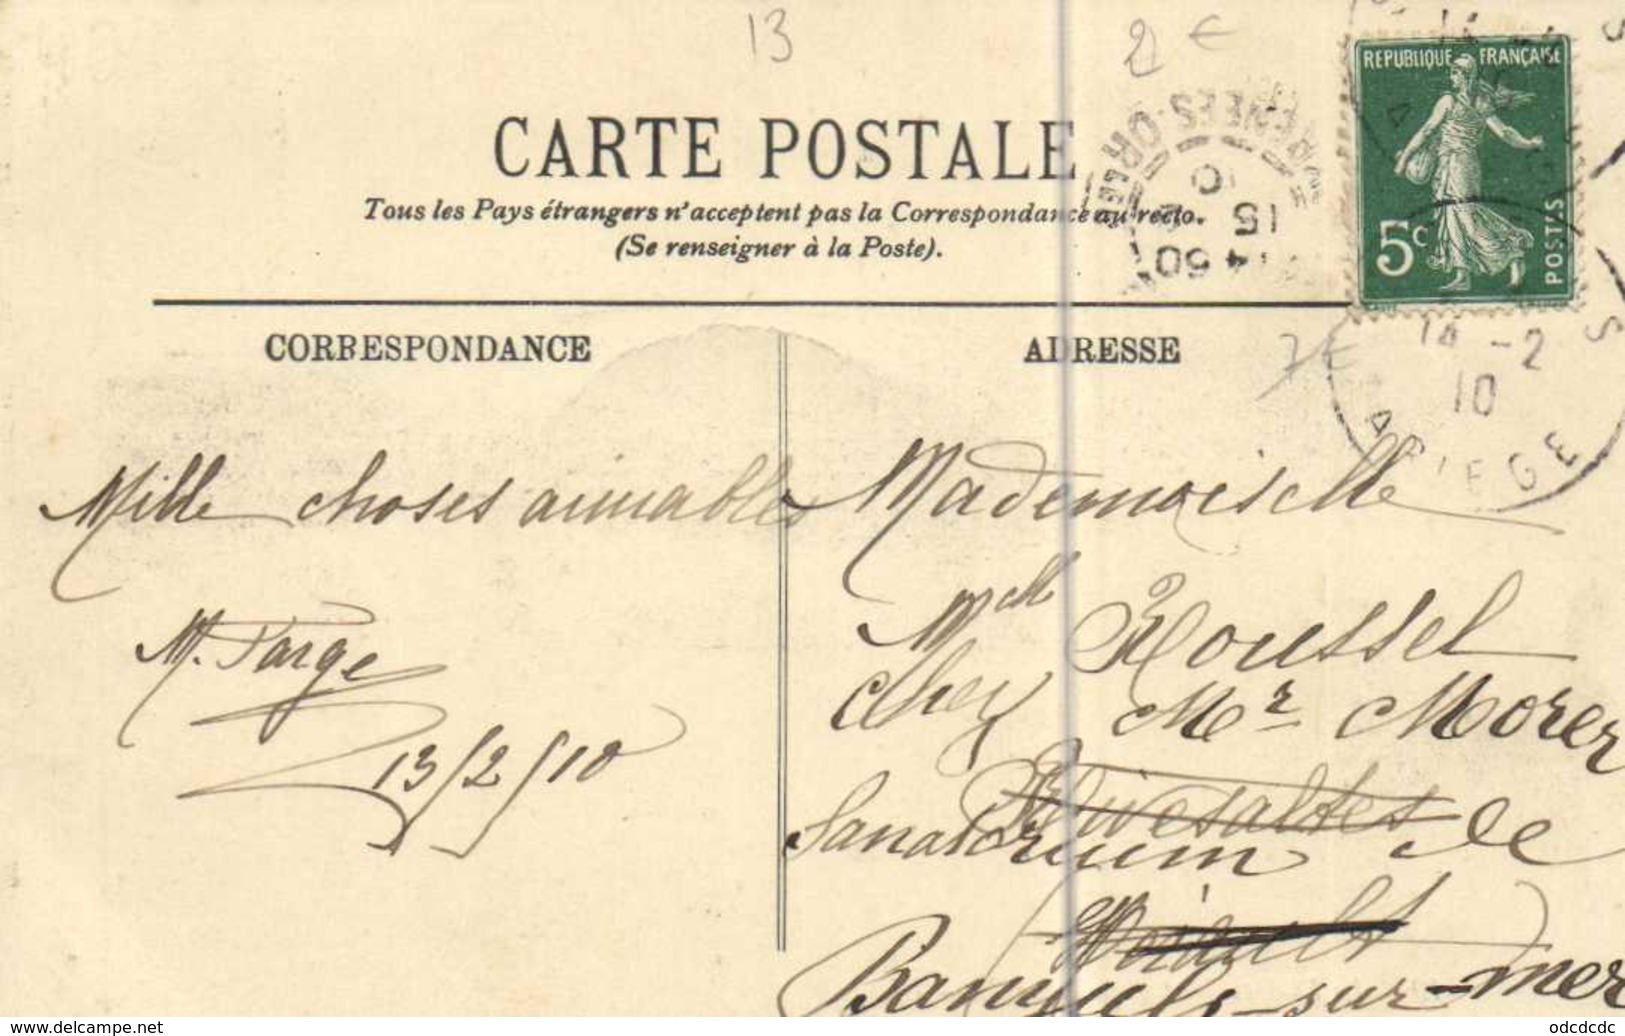 13
2 €
REPUBLIQUE FRANÇAISE
5c
POSTES
CARTE POSTALE
Tous les Pays étrangers n'acceptent pas la Correspondance au recto.
(Se renseigner à la Poste).
PYRENEES-ORLES
14 50
15 2
10
CORRESPONDANCE
ADRESSE
7 €
14 -2
10
ARIEGE
Mille choses aimables
M. Farge
13/2/10
Mademoiselle
Melle Roussel
chez Mr Morer
Rivesaltes
Sanatorium de
Banyuls-sur-mer
odcdcdc